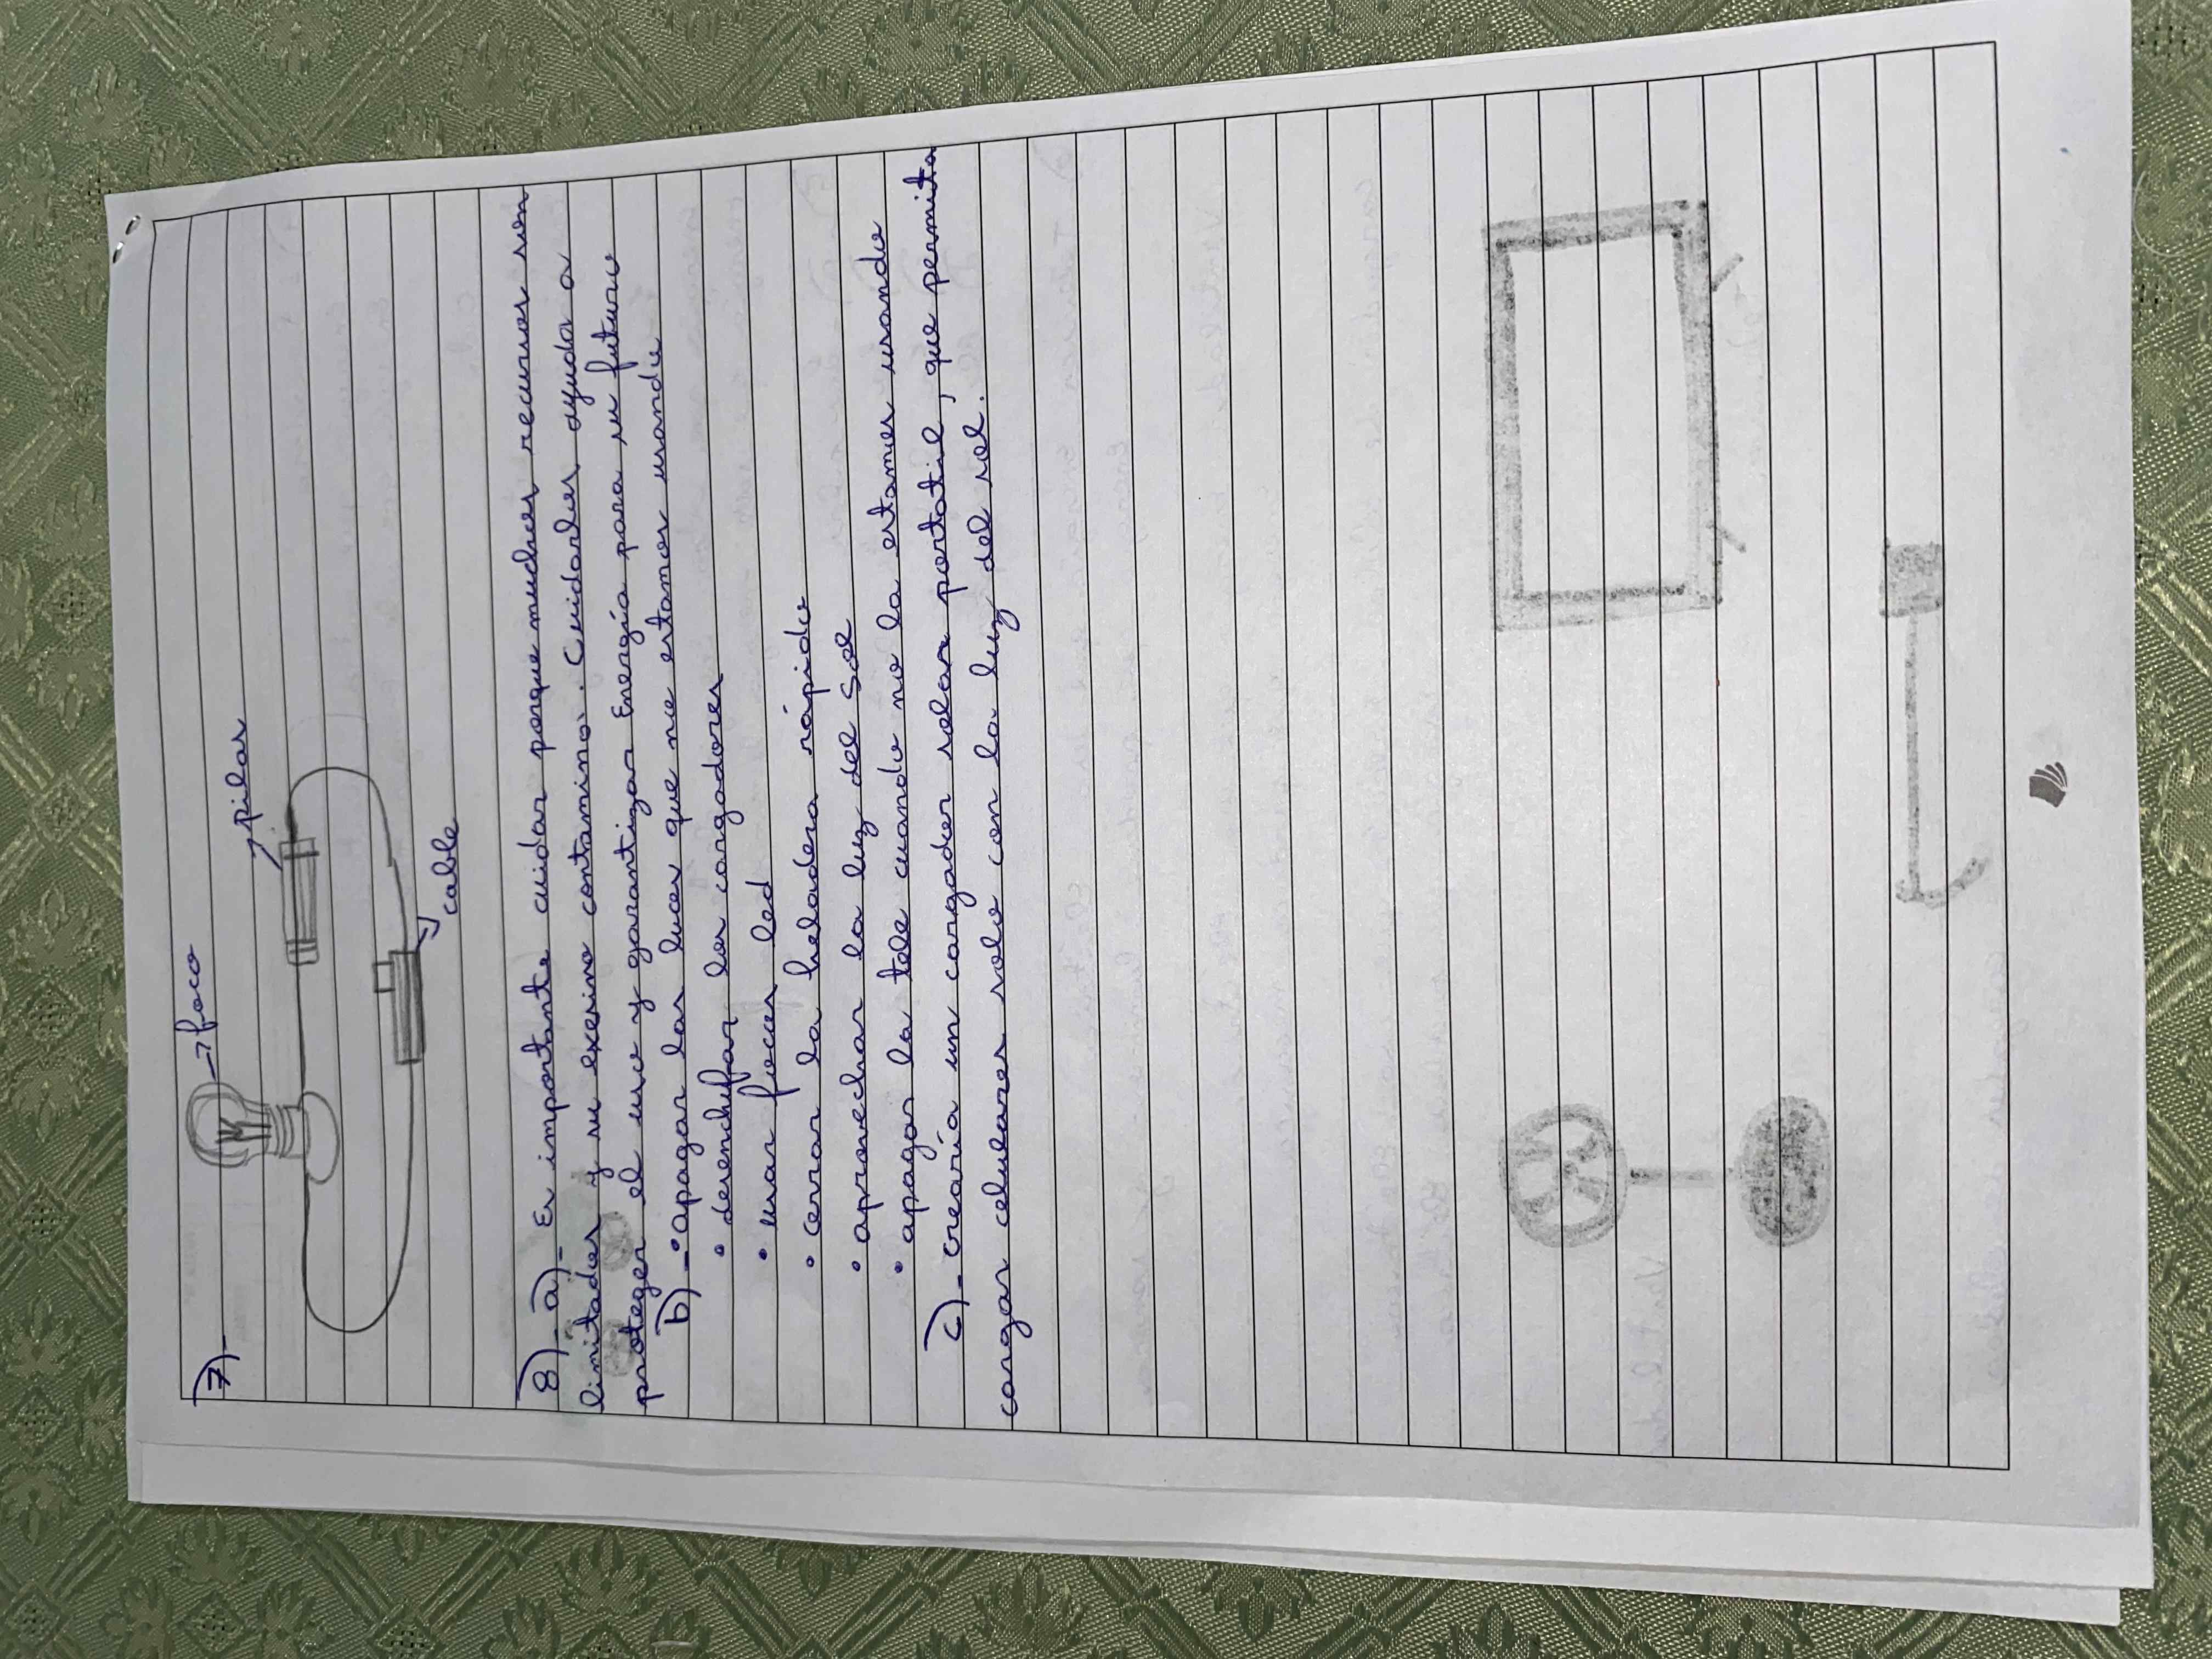 7)-
→foco
→pilas
→cable
8)-a)- Es importante cuidar porque muchos recursos son
limitados y su exceso contamina. Cuidarlos ayuda a
proteger el uso y garantizar Energía para su futuro
b)-• apagar las luces que no estamos usando
• desenchufar los cargadores
• usar focos led
• cerrar la heladera rápido
• aprovechar la luz del sol
• apagar la tele cuando no la estamos usando
c)- Crearía un cargador solar portatil, que permita
cargar celulares solo con la luz del sol.